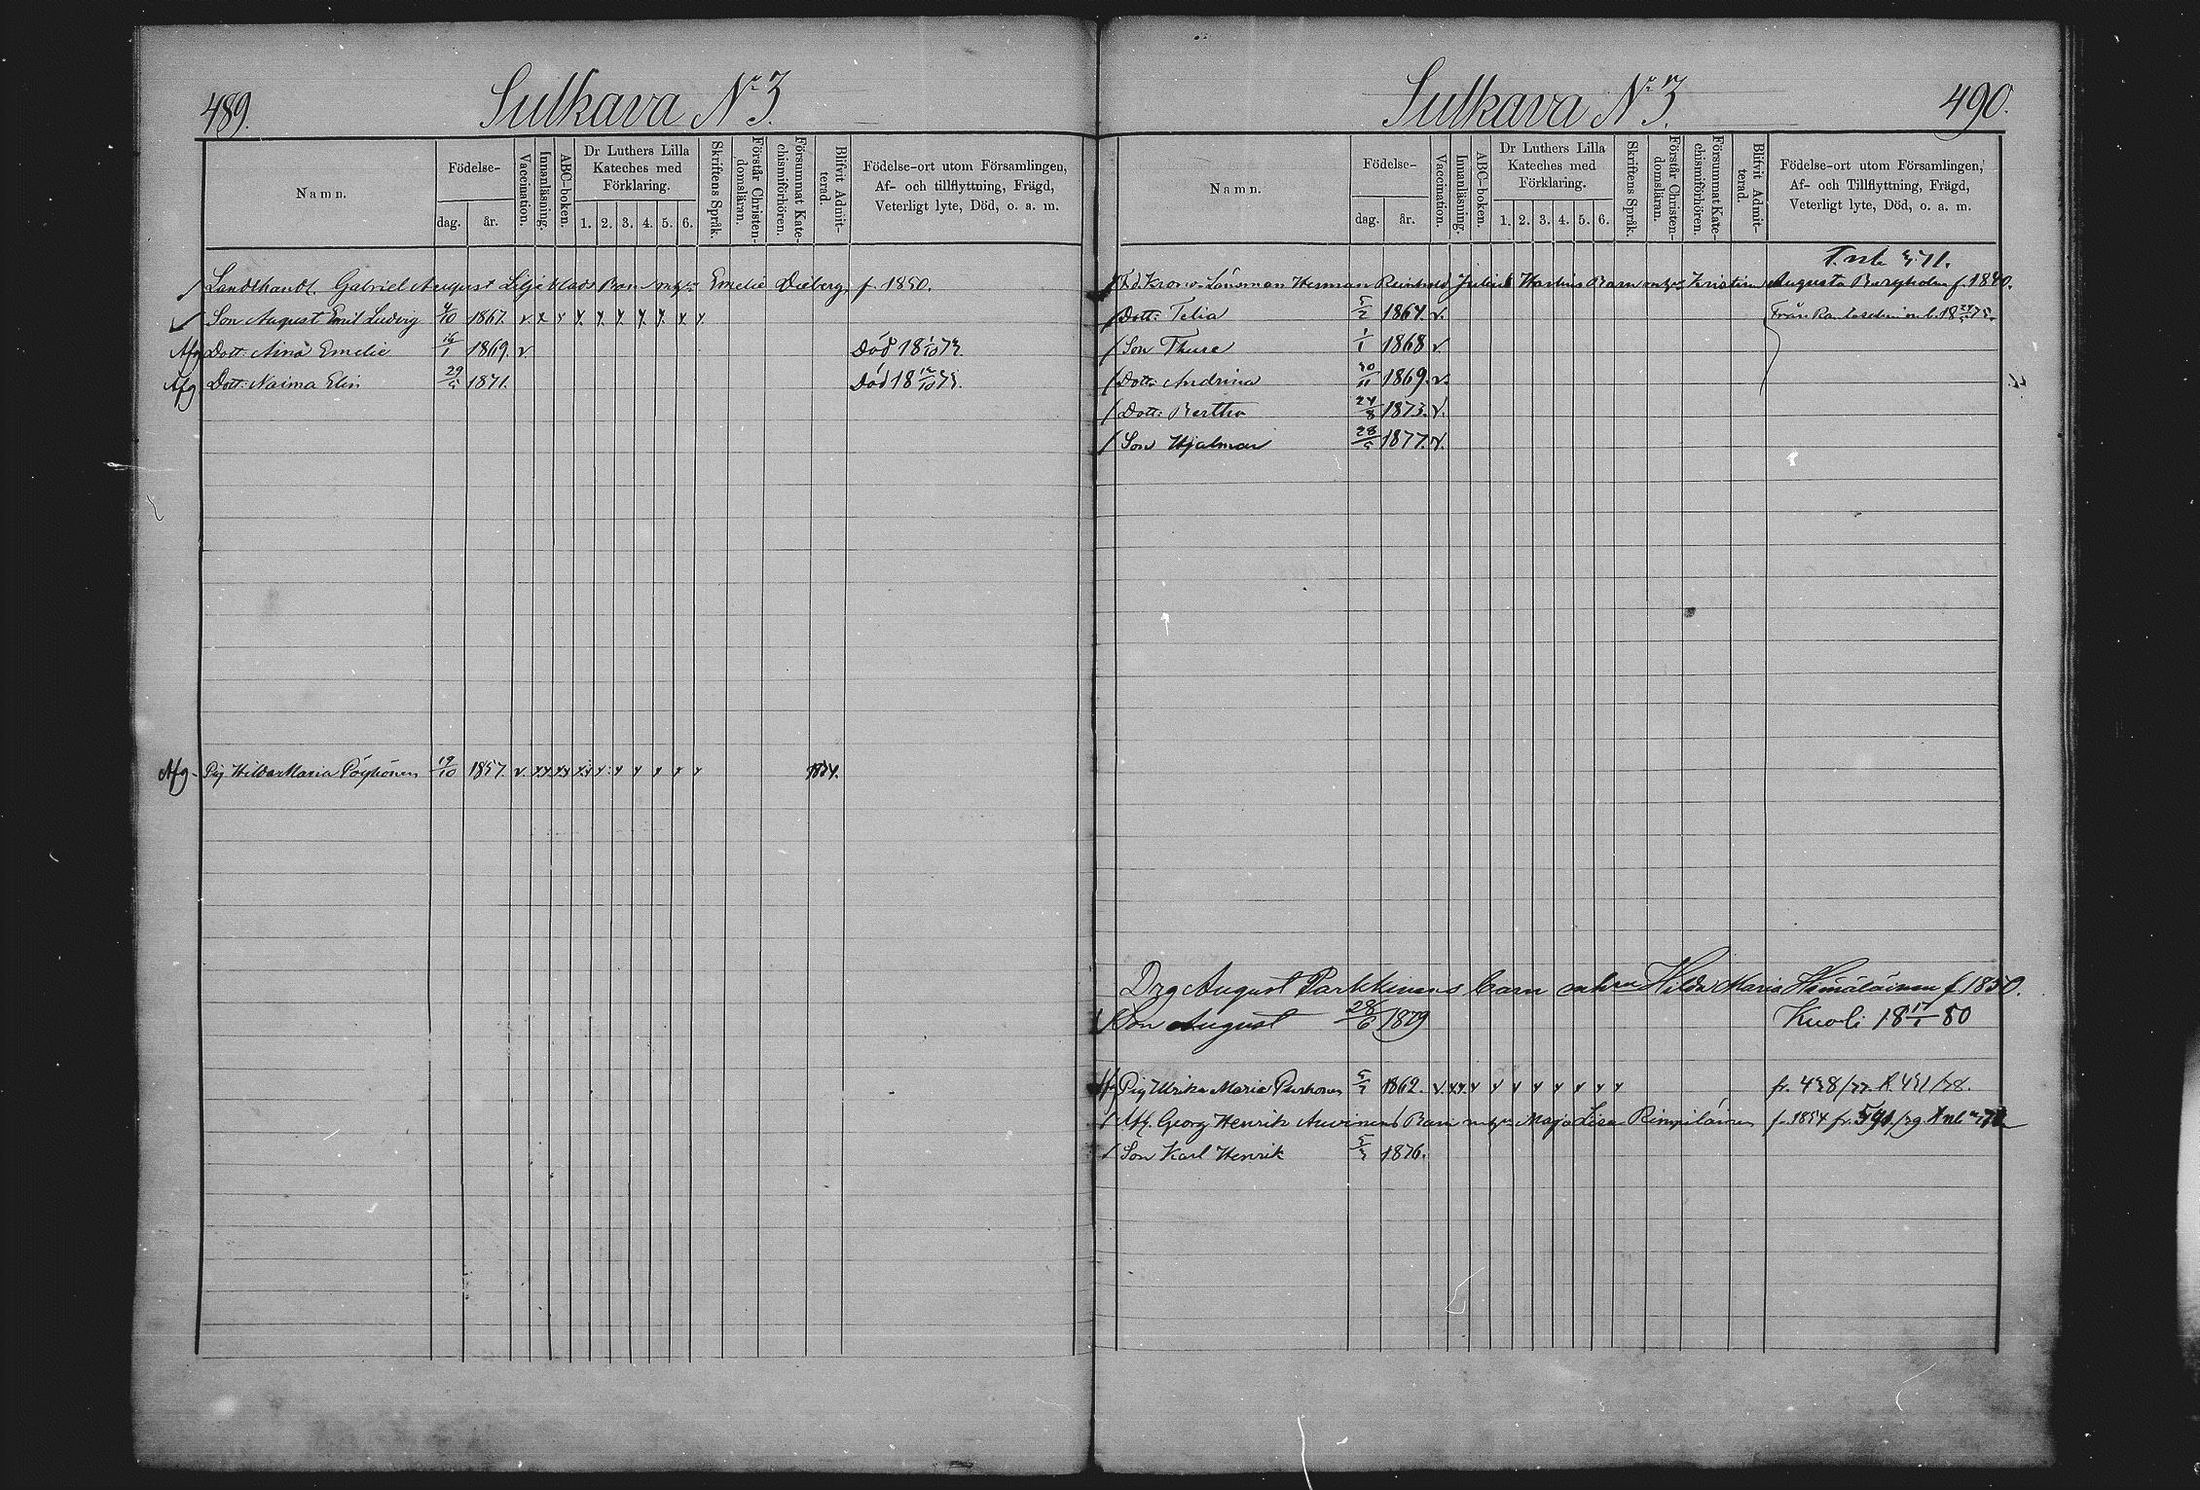 489.
Sulkava No 3.
Namn.
Födelse-
dag.
år.
Vaccination.
Innanläsning.
ABC-boken.
Dr Luthers Lilla
Kateches med
Förklaring.
1. 2. 3. 4. 5. 6.
Skriftens Språk.
Förstår Christen-
domsläran.
Försummat Kate-
chismiförhören.
Blifvit Admit-
terad.
Födelse-ort utom Församlingen,
Af- och tillflyttning, Frägd,
Veterligt lyte, Död, o. a. m.
Landthandl. Gabriel August Liljeblads Barn Emelie f. 1850.
Son August Emil Ludvig 1867. v x x x x x x x x x
Afg Dott: Nina Emelie 1869. v Död
Afg Dott: Naima Elin 1871. Död
Afg. Pig Hilda Maria Pöyhönen 19/10 1857. v.
Sulkava No 3.
490.
Namn.
Födelse-
dag.
år.
Vaccination.
Innanläsning.
ABC-boken.
Dr Luthers Lilla
Kateches med
Förklaring.
1. 2. 3. 4. 5. 6.
Skriftens Språk.
Förstår Christen-
domsläran.
Försummat Kate-
chismiförhören.
Blifvit Admit-
terad.
Födelse-ort utom Församlingen,
Af- och Tillflyttning, Frägd,
Veterligt lyte, Död, o. a. m.
Krono-Länsman Herman Reinhold Barn Augusta f. 1840.
Dott: 1864. v. Från
Son Thure 1/1 1868 v.
Dott: Andrina 1869. v.
Dott: Bertha 24/8 1873. v.
Son Hjalmar 1877. v.
Drg August Parkkinens barn Hilda Maria Hämäläinen f 1850.
Son August Kuoli 18 80
Pig Ulrika Maria 1862.
Georg Henrik Auvinens Barn Maja Lisa Rimpiläinen f. 1854
Son Karl Henrik 1876.